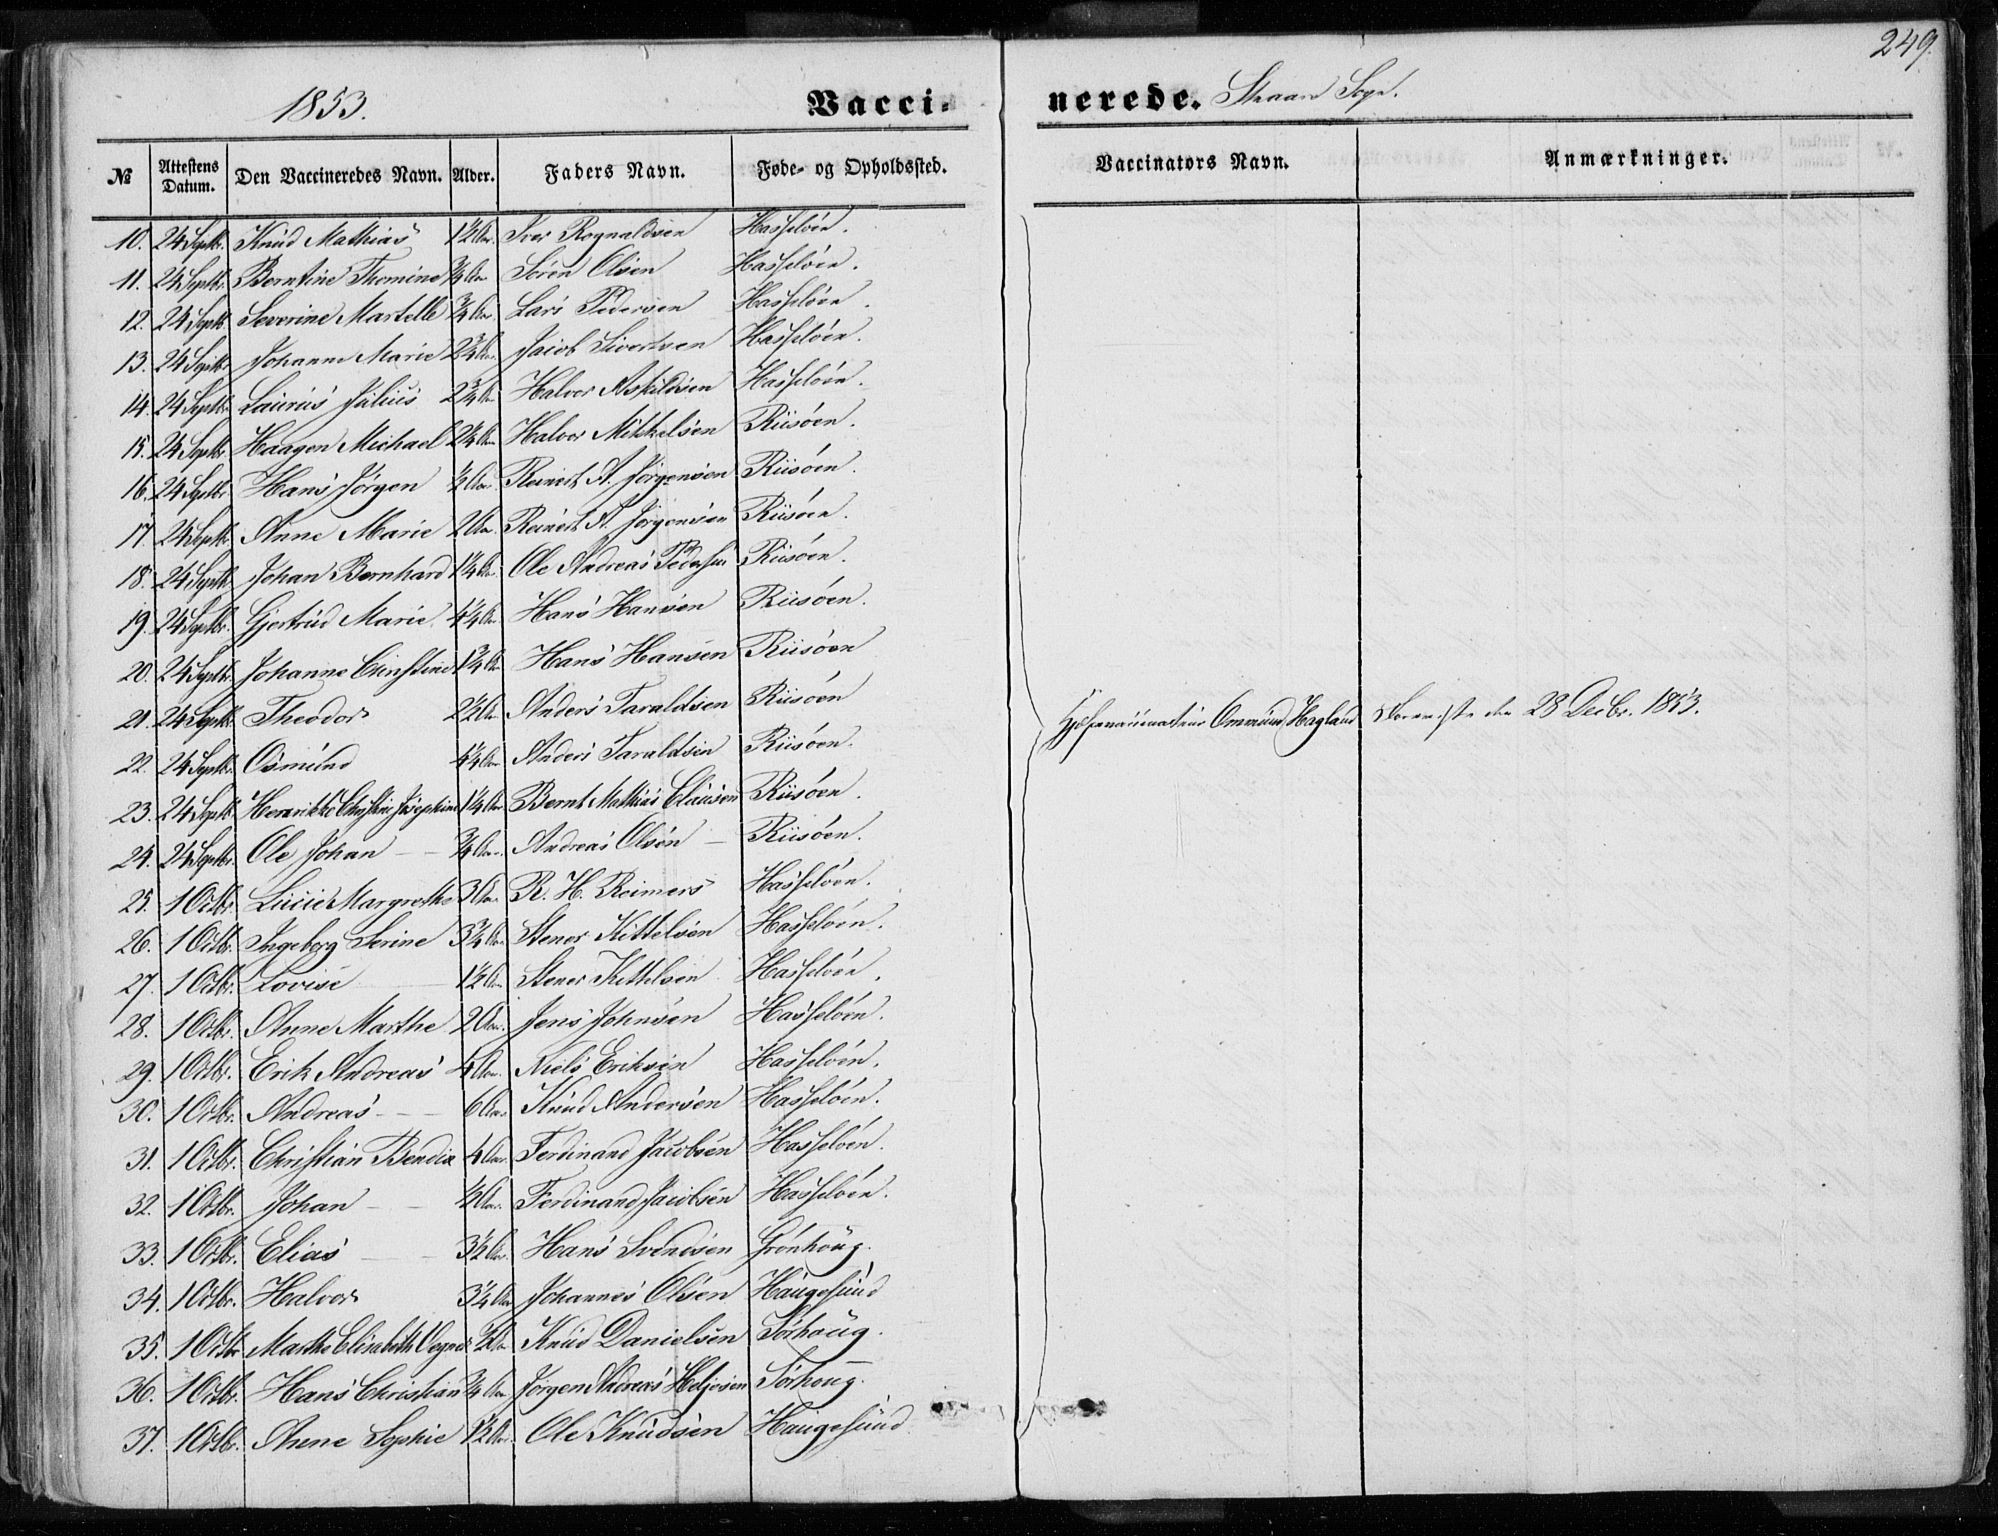 249.
1853. Vacci- nerede. Skaare Sogn.
№ Attestens Datum. Den Vaccineredes Navn. Alder. Faders Navn. Føde- og Opholdssted. Vaccinators Navn. Anmærkninger.
10. 24 Septbr. Knud Mathias 1½ Aar. Iver Rognaldsen Hasseløen.
11. 24 Septbr. Berntine Thomine ¾ Aar Søren Olsen Hasseløen.
12. 24 Septbr. Severine Martelle ¾ Aar. Lars Pedersen Hasseløen.
13. 24 Septbr. Johanne Marie 2¾ Aar. Jacob Sivertsen Hasseløen.
14. 24 Septbr. Laurus Julius 2¾ Aar Halvor Askildsen Hasseløen.
15. 24 Septbr. Haagen Michael 2¼ Aar Halvor Mikkelsen Riisøen.
16. 24 Septbr. Hans Jørgen ½ Aar. Reinert A. Jørgensen Riisøen.
17. 24 Septbr. Anne Marie 2 Aar. Reinert A. Jørgensen Riisøen.
18. 24 Septbr. Johan Bernhard 1¼ Aar. Ole Andreas Pedersen Riisøen.
19. 24 Septbr. Gjertrud Marie. 4¼ Aar Hans Hansen Riisøen.
20. 24 Septbr. Johanne Christine 1¾ Aar Hans Hansen Riisøen
21. 24 Septbr. Theodor 2½ Aar Anders Taraldsen Riisøen
Hjelpevaccinateur Ommund Hagland den 28 Decbr. 1853.
22. 24 Septbr. Osmund 4¼ Aar Anders Taraldsen Riisøen.
23. 24 Septbr. Henrikke Christine Josephine 1¼ Aar Bernt Mathias Clausen Riisøen.
24. 24 Septbr. Ole Johan — ¾ Aar. Andreas Olsen — Riisøen.
25. 1 Octbr. Lucie Margrethe 3 Aar R. H. Reimers Hasseløen.
26. 1 Octbr. Ingeborg Serine 3¾ Aar. Stener Kittelsen Hasseløen.
27. 1 Octbr. Lovise 1½ Aar. Stener Kittelsen Hasseløen.
28. 1 Octbr. Anne Marthe 2 Aar. Jens Johnsen Hasseløen.
29. 1 Octbr. Erik Andreas 4 Aar. Niels Eriksen Hasseløen.
30. 1 Octbr. Andreas — 6 Aar. Knud Andersen Hasseløen.
31. 1 Octbr. Christian Bendix 4 Aar. Ferdinand Jacobsen Hasseløen.
32. 1 Octbr. Johan — ½ Aar. Ferdinand Jacobsen Hasseløen.
33. 1 Octbr. Elias 3½ Aar. Hans Svendsen Grønhoug.
34. 1 Octbr. Halvor 3¼ Aar Johannes Olsen Haugesund
35. 1 Octbr Marthe Elisabeth ½ Aar Knud Danielsen Sørhoug.
36. 1 Octbr. Hans Christian ¾ Aar Jørgen Andreas Sørhoug.
37. 1 Octbr. Anne Sophie 1½ Aar. Ole Knudsen Haugesund